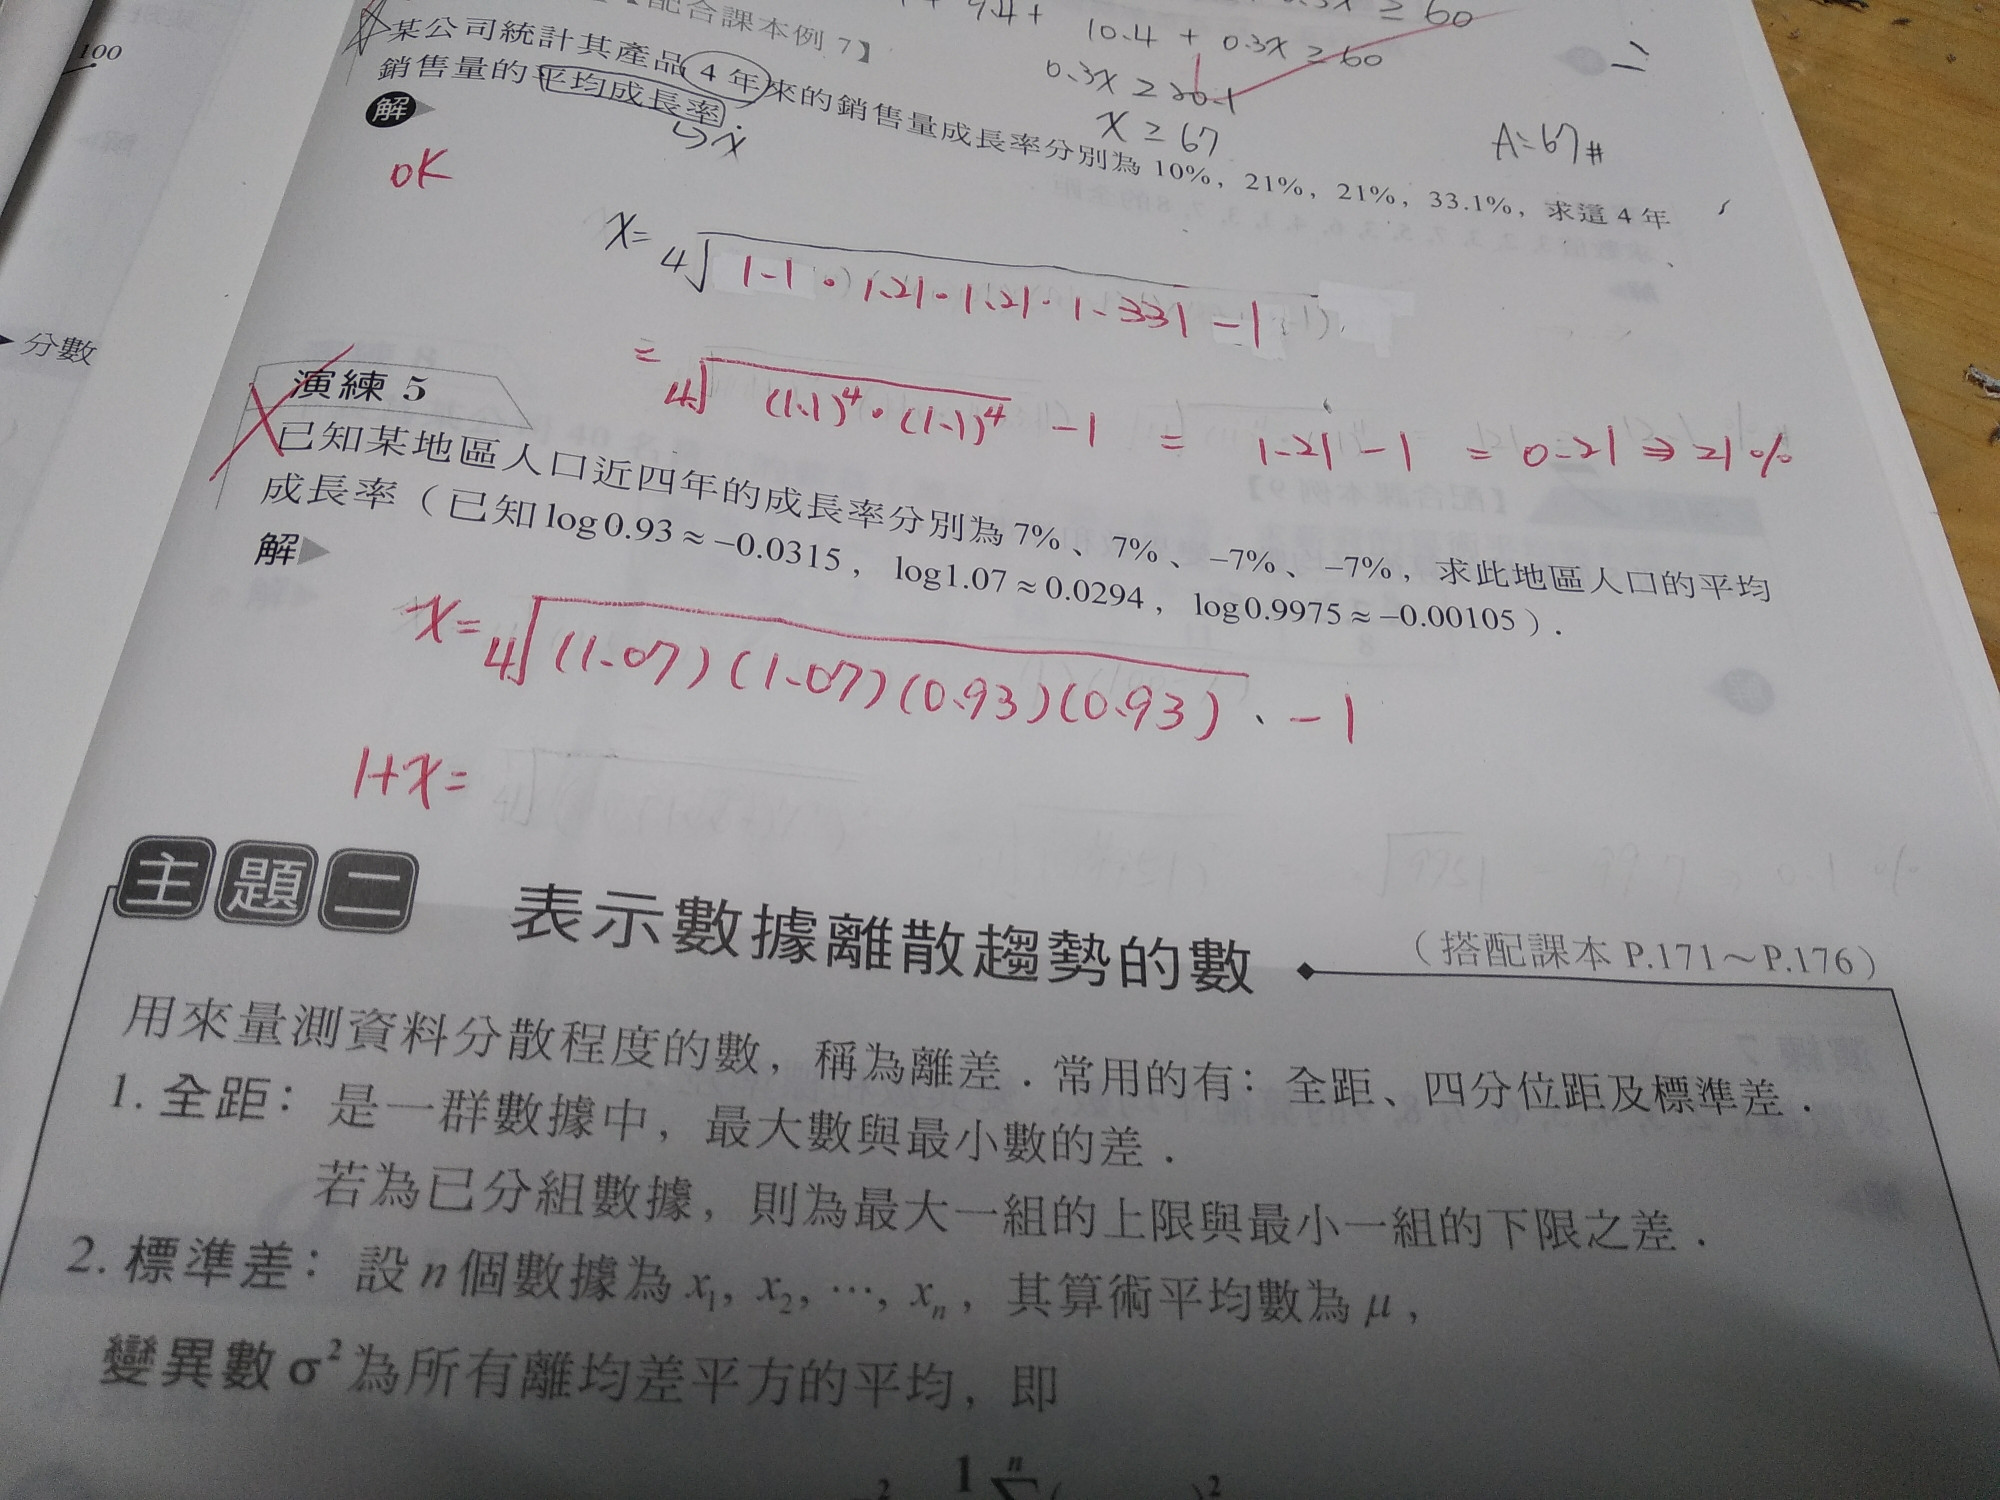 9.4+ 10.4 + 0.3x ≥ 60
0.3x ≥ 20.1
x ≥ 67
A=67#
【配合課本例 7】
某公司統計其產品 4 年來的銷售量成長率分別為 10%, 21%, 21%, 33.1%, 求這 4 年
銷售量的平均成長率
↳x
解
OK
x= 4√1.1·1.21·1.21·1.331 -1
= 4√(1.1)⁴·(1.1)⁴ -1 = 1.21-1 = 0.21 ⇒ 21%
100
分數
演練 5
已知某地區人口近四年的成長率分別為 7%、7%、–7%、–7%, 求此地區人口的平均
成長率（已知 log0.93 ≈ –0.0315, log1.07 ≈ 0.0294, log0.9975 ≈ –0.00105）.
解
x= 4√(1.07)(1.07)(0.93)(0.93) -1
1+x=
主題二 表示數據離散趨勢的數
（搭配課本 P.171～P.176）
用來量測資料分散程度的數, 稱為離差. 常用的有: 全距、四分位距及標準差.
1. 全距: 是一群數據中, 最大數與最小數的差.
若為已分組數據, 則為最大一組的上限與最小一組的下限之差.
2. 標準差: 設 n 個數據為 x₁, x₂, …, xₙ, 其算術平均數為 μ,
變異數 σ² 為所有離均差平方的平均, 即